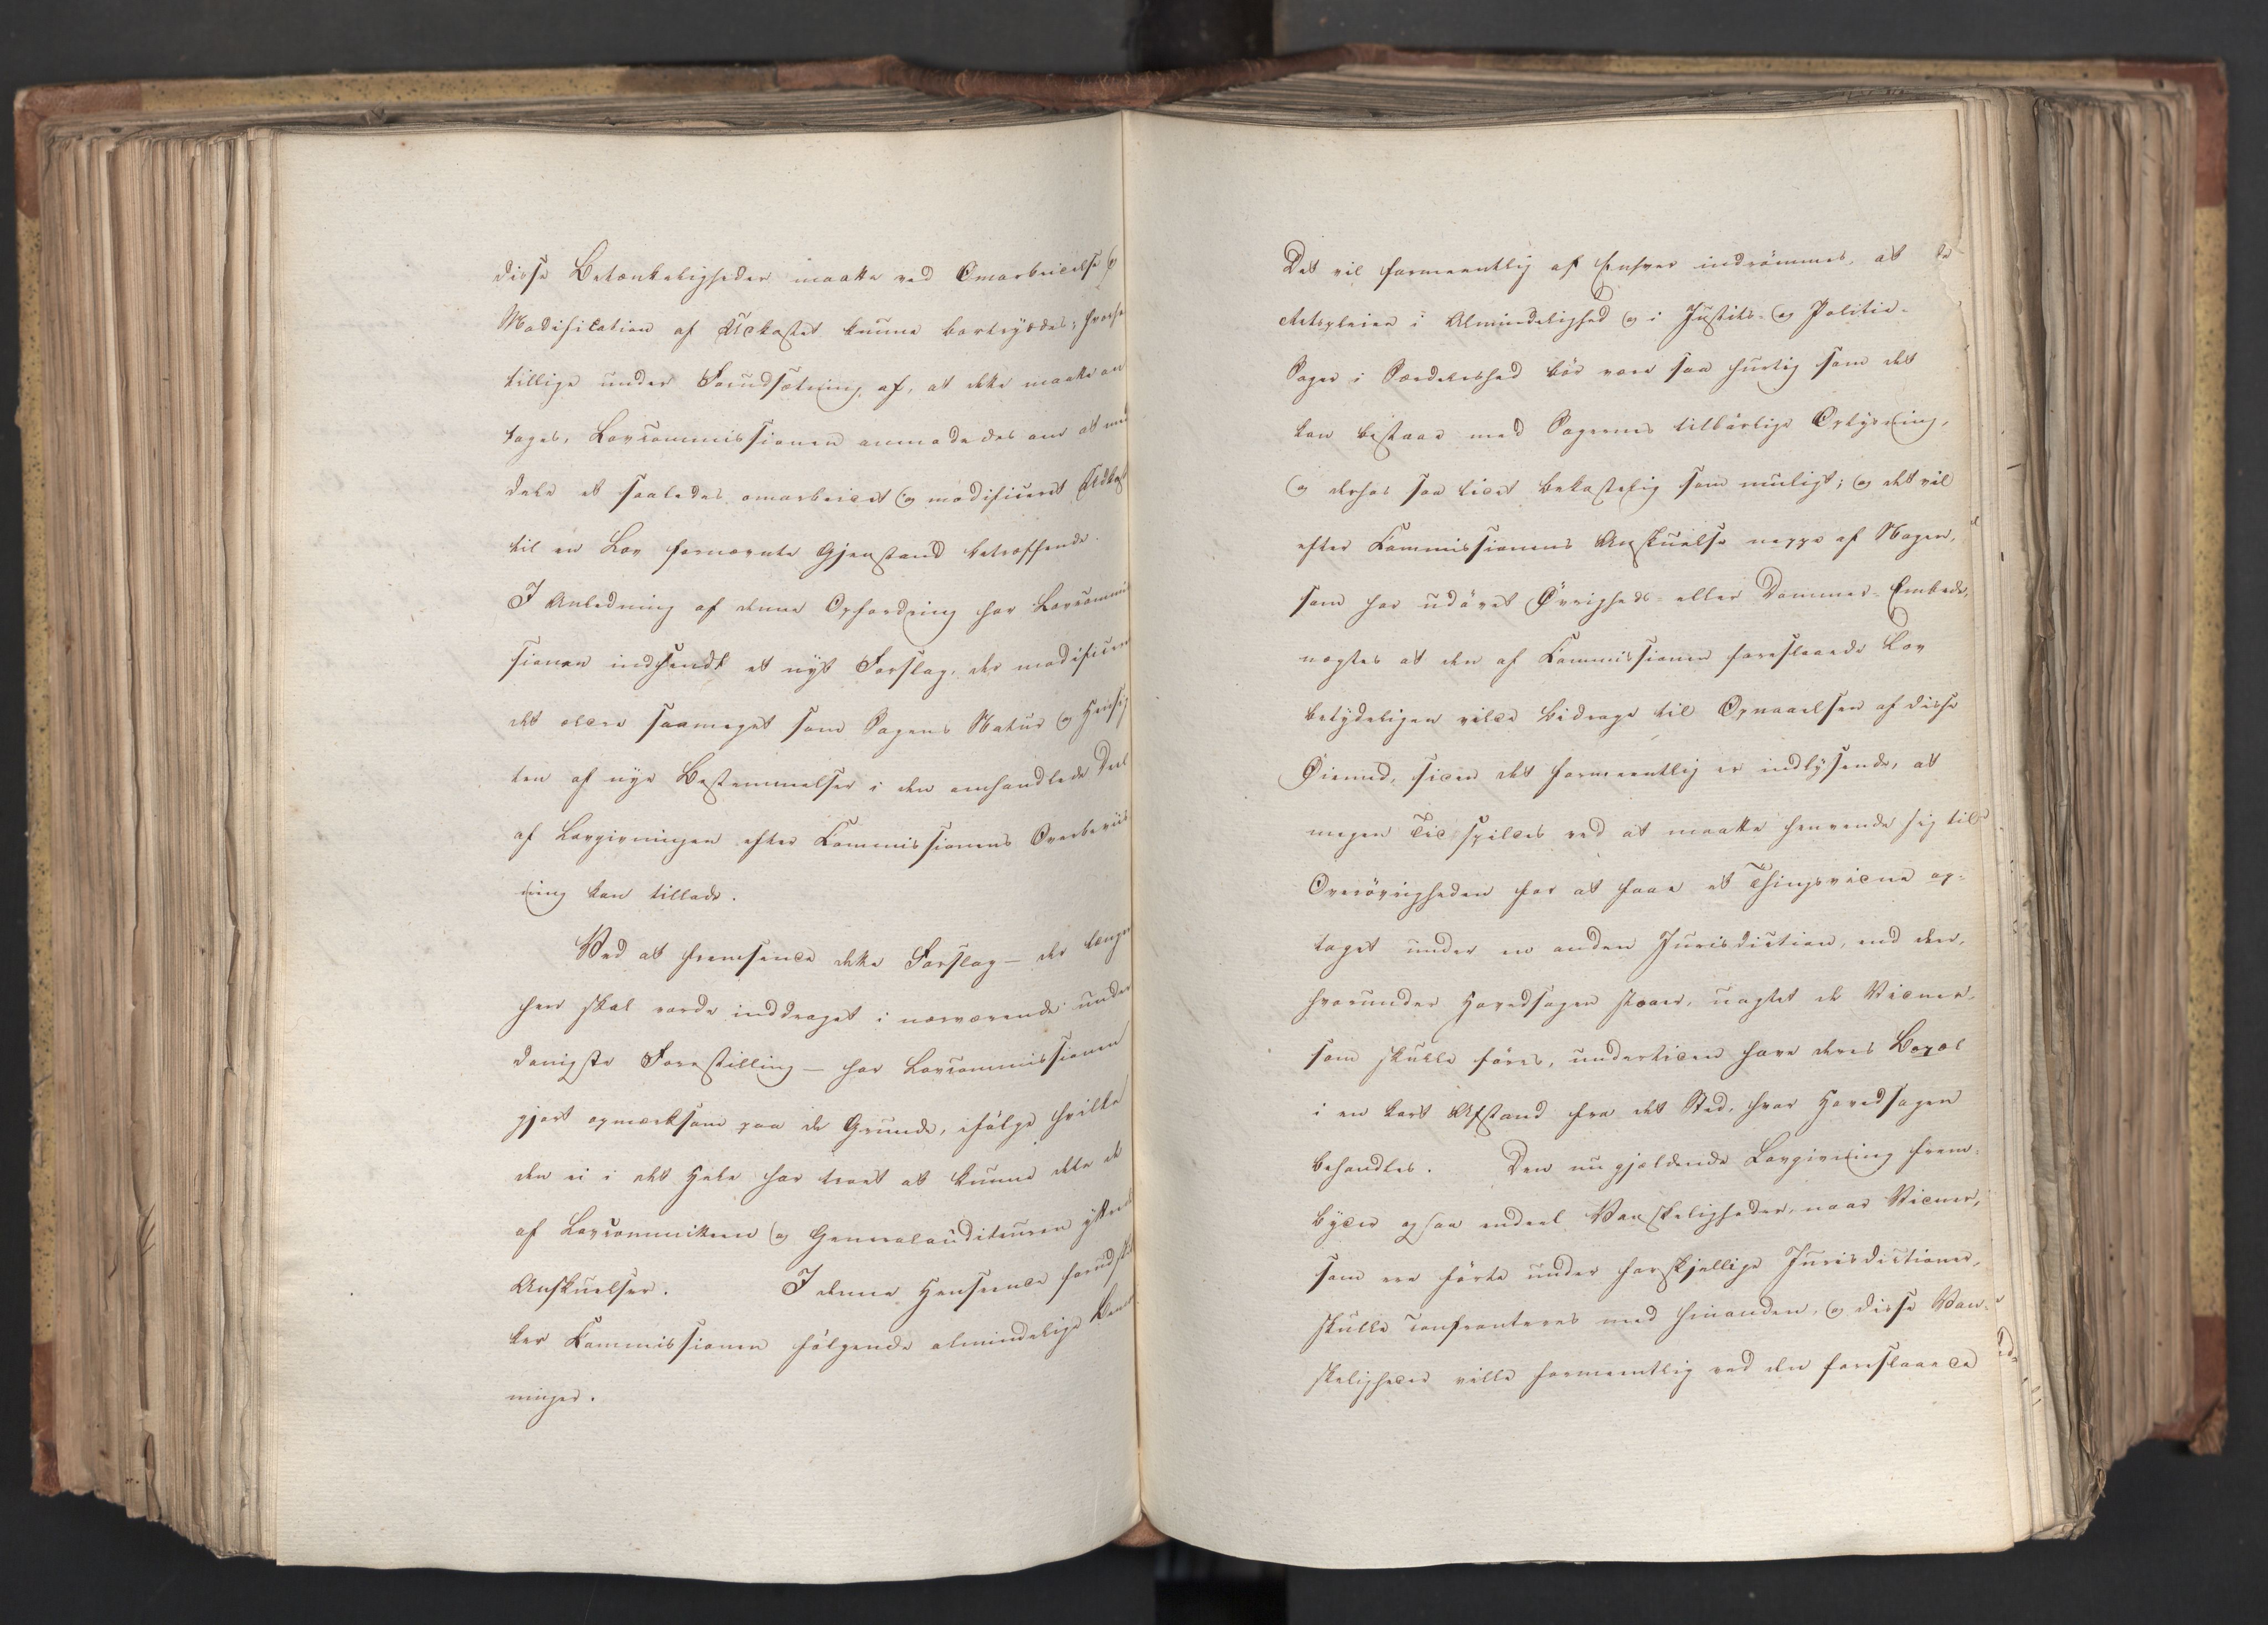 disse Betænkeligheder maatte ved Omarbeidelse og
Modification af Udkastet kunne bortryddes; hvorhos
tillige under Forudsætning af, at dette maatte an
tages, Lovcommissionen anmodedes om at med
dele et saaledes omarbeidet og modificeret Udkast
til en Lov fornævnte Gjenstand betræffende.
I Anledning af denne Opfordring har Lovcommis
sionen indsendt et nyt Forslag, der modificerer
det ældre saameget som Sagens Natur og Hensig
ten af nye Bestemmelser i den omhandlede Deel
af Lovgivningen efter Kommissionens Overbeviis
ning kan tillade.
Ved at fremsende dette Forslag — der længer
hen skal vorde inddraget i nærværende under
danigste Forestilling — har Lovcommissionen
gjort opmærksom paa de Grunde, ifølge hvilke
den ei i det Hele har troet at kunne dele de
af Lovcommitteen og Generalauditeuren yttrede
Anskuelser. I denne Henseende forudskik
ker Kommissionen følgende almindelige Bemærk
ninger.
Det vil formeentlig af Enhver indrömmes, at
Retspleien i Almindelighed og i Justits- og Politie-
Sager i Særdeleshed bör være saa hurtig som det
kan bestaae med Sagernes tilbörlige Oplysning,
og derhos saa lidet bekostelig som muligt; og det vil
efter Kommissionens Anskuelse neppe af Nogen,
som har udövet Øvrigheds- eller Dommer-Embede,
nægtes at den af Kommissionen foreslaaede Lov
betydeligen vilde bidrage til Opnaaelsen af disse
Øiemed, siden det formeentlig er indlysende, at
megen Tid spildes ved at maatte henvende sig til
Overövrigheden for at faae et Thingsvidne op-
taget under en anden Jurisdiction, end den,
hvorunder Hovedsagen staaer, uagtet de Vidner,
som skulle föres, undertiden have deres Bopæl
i en kort Afstand fra det Sted, hvor Hovedsagen
behandles. Den nu gjældende Lovgivning frem-
byder ogsaa endeel Vanskeligheder, naar Vidner,
som ere förte under forskjellige Jurisdictioner,
skulle confronteres med hinanden, og disse Van-
skeligheder ville formeentlig ved den foreslaaede